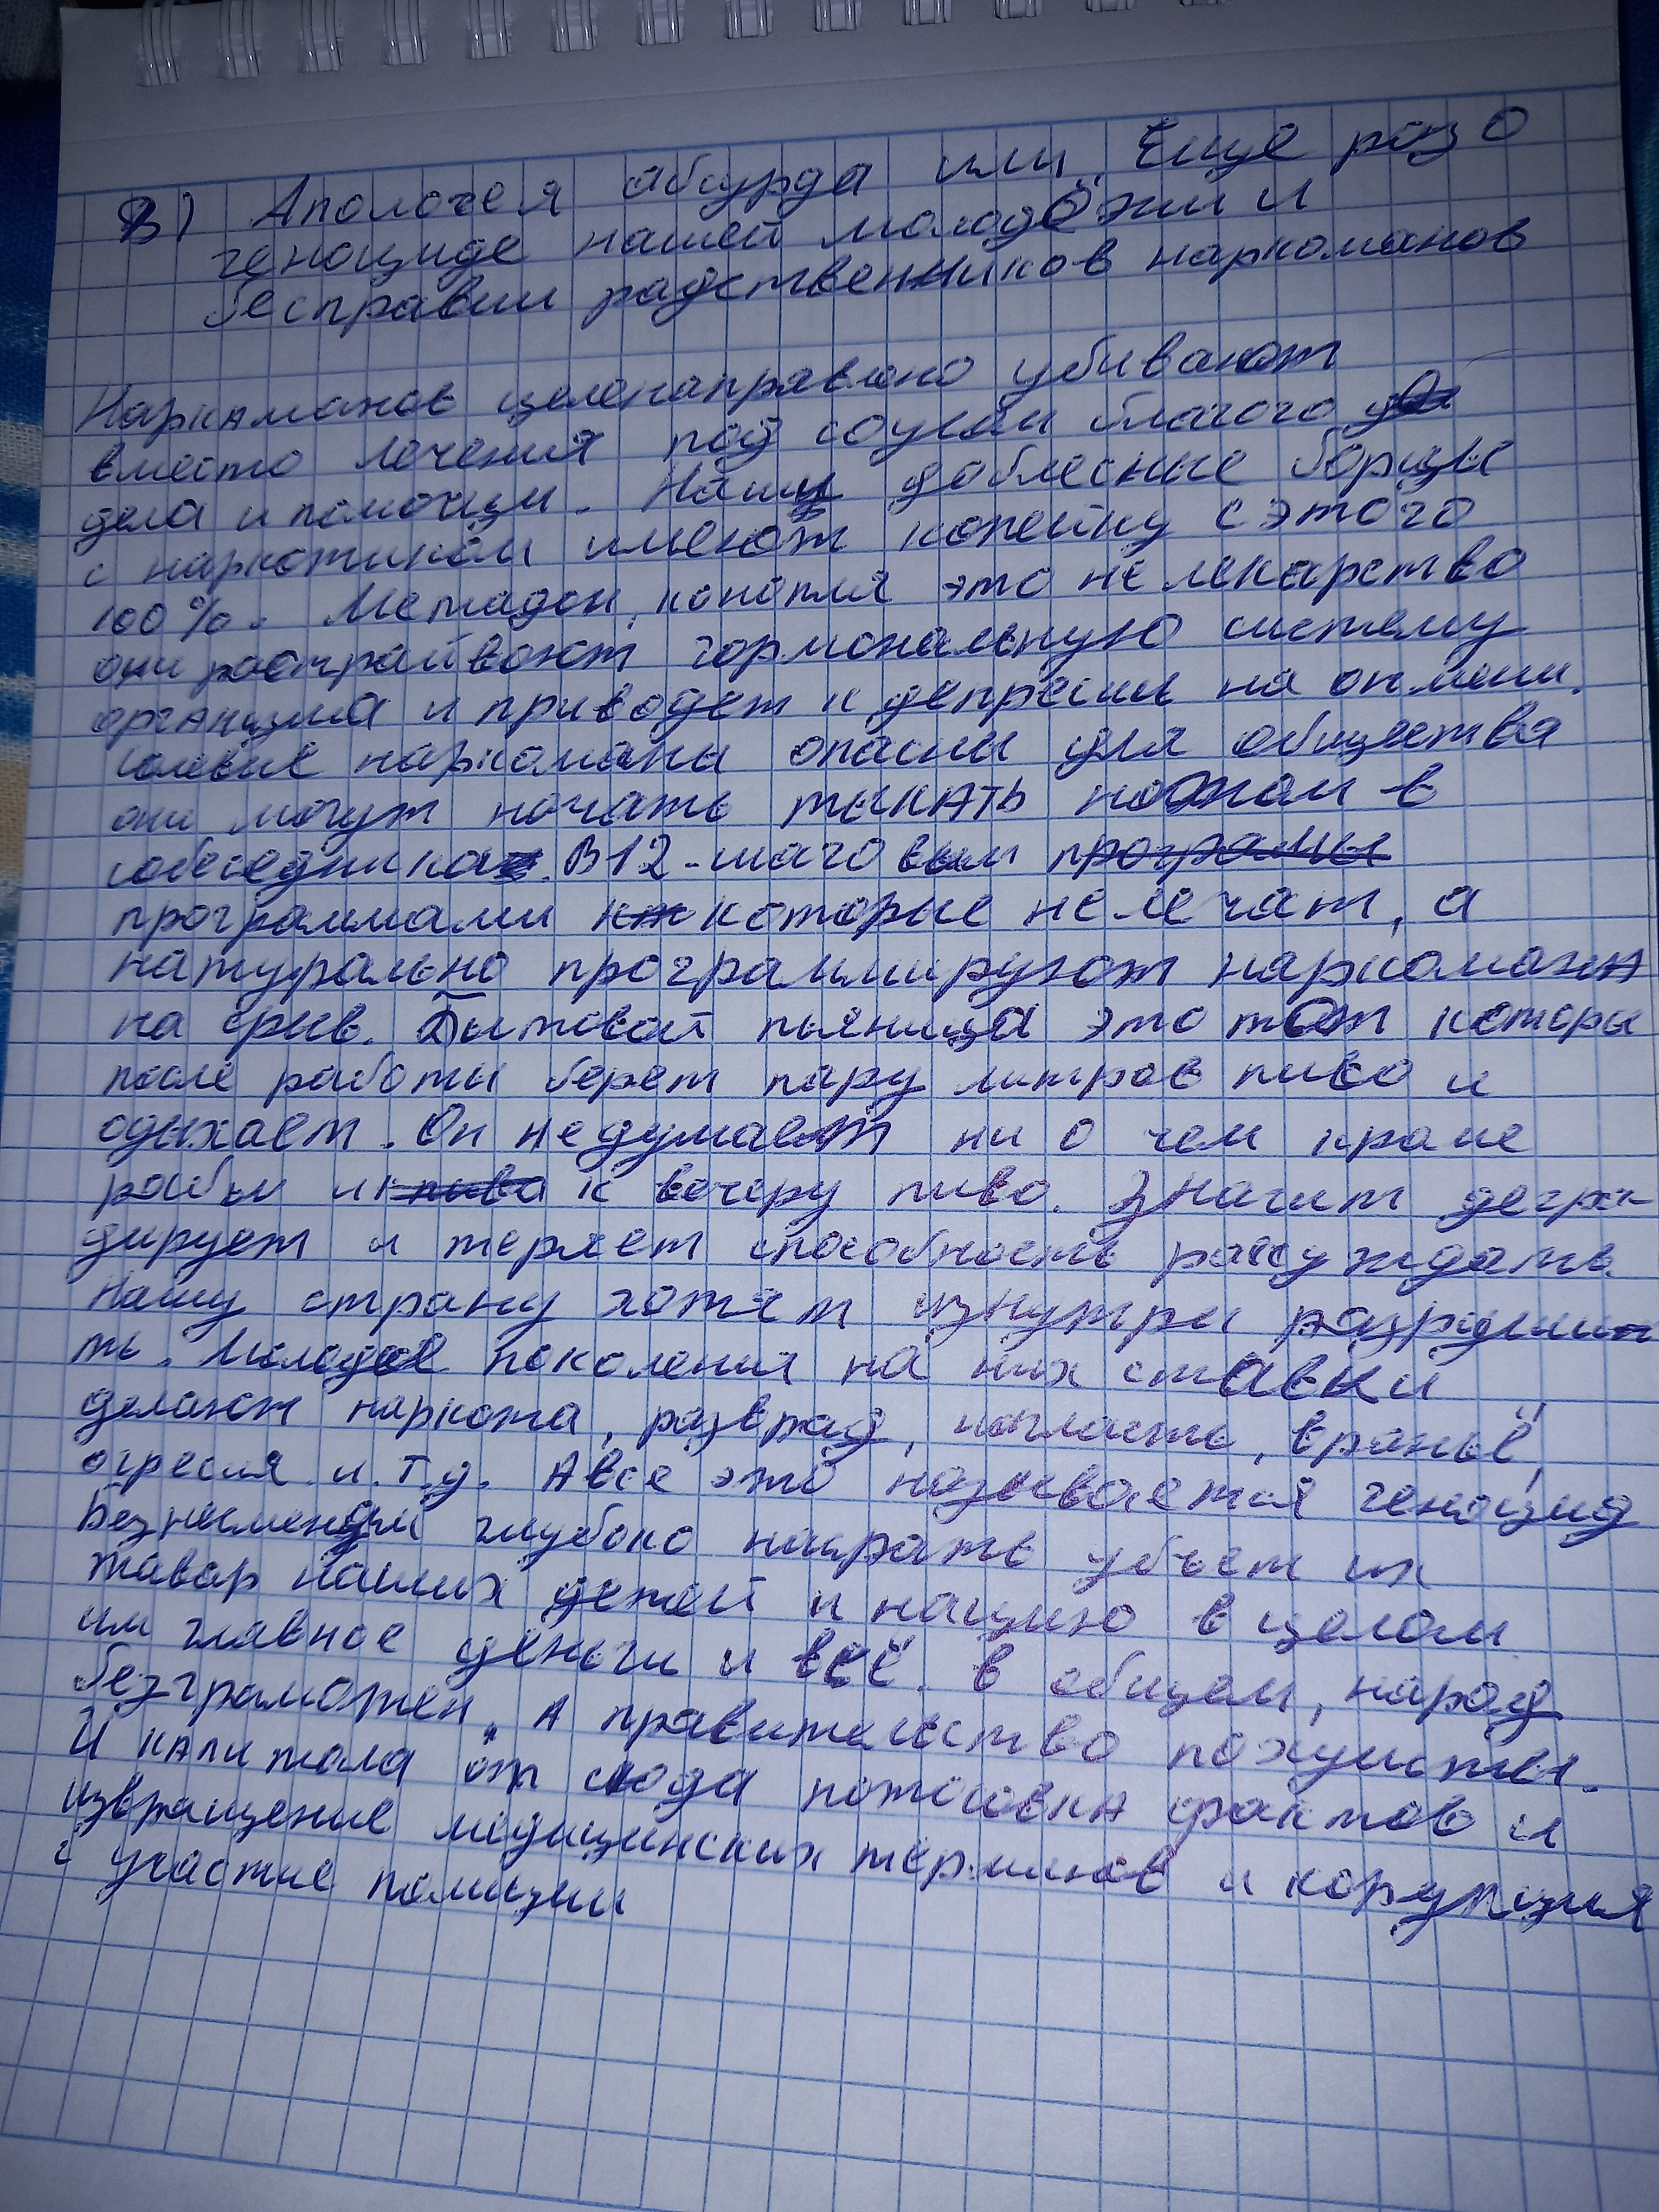 В) Апологея абсурда или Еще раз о
геноциде нашей молодёжи и
бесправии радственников наркоманов
Наркаманов целенаправлено убивают
вместо лечения под соусом благого
дела и помощи. Нашы доблесные борцы
с наркотиком имеют копейку с этого
100%. Метадон, конопля это не лекарство
они растрайвают гормональную систему
организма и приводет к депресии на отмени.
Солевые наркоманы опасны для общества
они могут начать тыкать ножом в
собеседника. В 12-шаговым програмы
программами которые не лечат, а
натурально программируют наркомана
на срыв. Бытовой пьяница это тот которы
после работы берет пару литров пиво и
одыхает. Он не думает ни о чем кроме
работы и к пива к вечеру пиво. Значит дегра-
дирует и теряет способность рассуждать.
Нашу страну хотят изнутри разрушить
ть. Молодое поколения на них ставки
делают наркота, разврад, наглость, враньё,
огресия и.т.д. А все это называется геноцид
Безнесменам глубоко насрать убьет их
тавар наших детей и нацию в целом
им главное деньги и всё. В общем, народ
безграмотен. А правительство похуисты.
И капитала от сюда потосовка фактов и
извращение медицинских терминов и корупция
с участие полиции